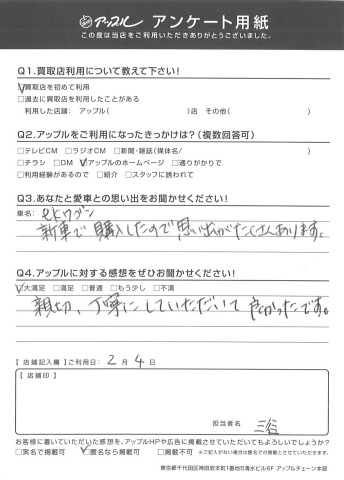 アップル アンケート用紙
この度は当店をご利用いただきありがとうございました。
Q1.買取店利用について教えて下さい!
☑買取店を初めて利用
□過去に買取店を利用したことがある
利用した店舗: アップル( )店 その他( )
Q2.アップルをご利用になったきっかけは?(複数回答可)
□テレビCM □ラジオCM □新聞・雑誌(媒体名/ )
□チラシ □DM ☑アップルのホームページ □通りがかりで
□利用経験があるので □紹介 □スタッフに誘われて
Q3.あなたと愛車との思い出をお聞かせください!
車名: eKワゴン
新車で購入したので思い出がたくさんあります。
Q4.アップルに対する感想をぜひお聞かせください!
☑大満足 □満足 □普通 □もう少し □不満
親切、丁寧にしていただいて良かったです。
【店舗記入欄】ご利用日: 2月4日
【店舗印】
担当者名 三谷
お客様に書いていただいた感想を、アップルHPや広告に掲載させていただいてもよろしいでしょうか?
□実名で掲載可 ☑匿名なら掲載可 □掲載不可 ※ご記入がない場合は匿名での掲載とさせていただきます。
東京都千代田区神田岩本町1番地5清水ビル6F アップルチェーン本部